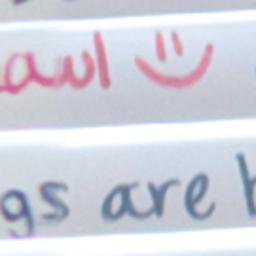 awl
gs are